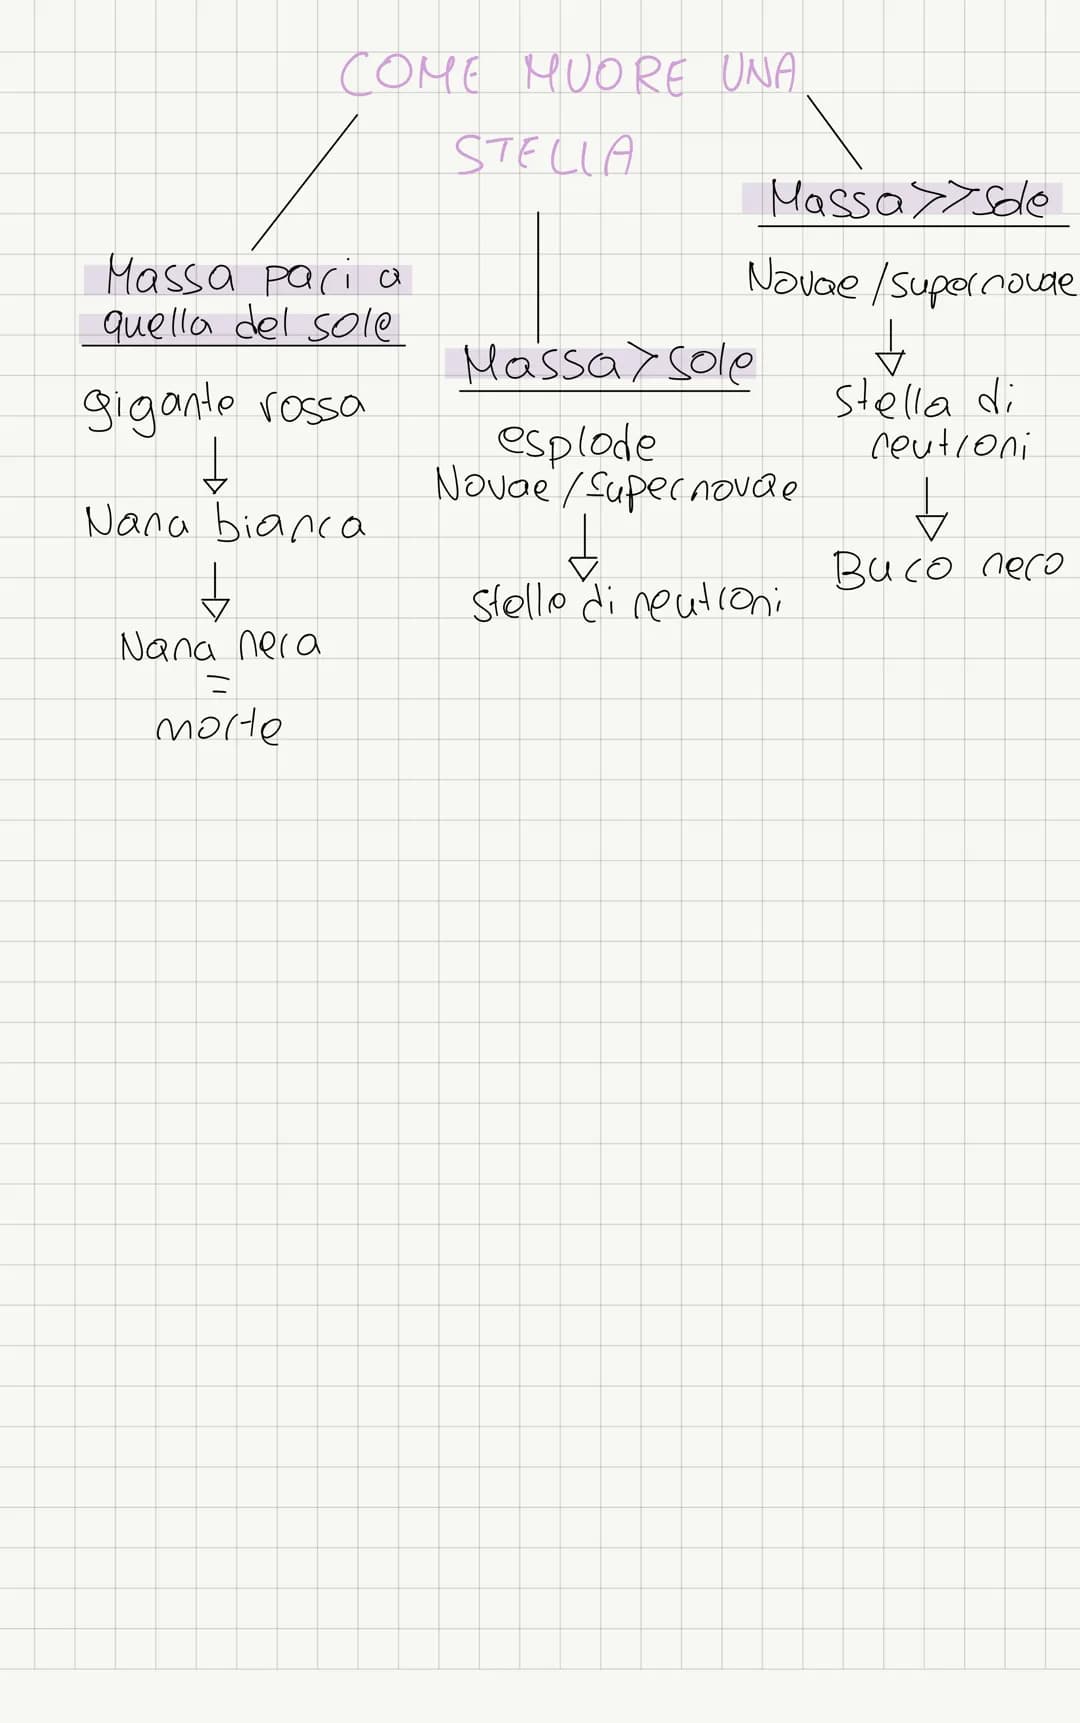 COME MUORE UNA
STELLA
Massa pari a
quella del sole
gigante rossa
Nana bianca
Nana nera
=
morte
Massa > sole
esplode
Novae / Supernovae
stelle di neutroni
Massa >> Sole
Novae / supernovae
stella di
neutroni
Buco nero